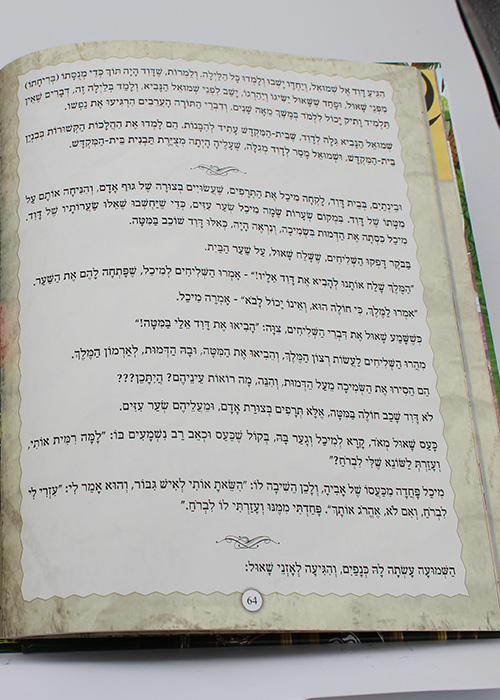 הִגִּיעַ דָּוִד אֶל שְׁמוּאֵל, וְיַחְדָּיו יָשְׁבוּ וְלָמְדוּ כָּל הַלַּיְלָה. וְלַמְרוֹת, שֶׁדָּוִד הָיָה תּוֹךְ כְּדֵי מְנֻסָתוֹ (בְּרִיחָתוֹ)
מִפְּנֵי שָׁאוּל, וּפָחַד שֶׁשָּׁאוּל יַשִּׂיגוֹ וְיַהַרְגֵהוּ, יָשַׁב לִפְנֵי שְׁמוּאֵל הַנָּבִיא, וְלָמַד בְּלַיְלָה זֶה, דְּבָרִים שֶׁאֵין
תַּלְמִיד וָתִיק יָכוֹל לִלְמֹד בְּמֶשֶׁךְ מֵאָה שָׁנִים, וְדִבְרֵי הַתּוֹרָה הָעֲרֵבִים הִרְגִּיעוּ אֶת נַפְשׁוֹ.
שְׁמוּאֵל הַנָּבִיא גִּלָּה לְדָוִד, שֶׁבֵּית-הַמִּקְדָּשׁ עָתִיד לְהִבָּנוֹת. הֵם לָמְדוּ אֶת הַהֲלָכוֹת הַקְּשׁוּרוֹת בְּבִנְיַן
בֵּית-הַמִּקְדָּשׁ, וּשְׁמוּאֵל מָסַר לְדָוִד מְגִלָּה, שֶׁעָלֶיהָ הָיְתָה מְצֻיֶּרֶת תַּבְנִית בֵּית-הַמִּקְדָּשׁ.
וּבֵינְתַיִם, בְּבֵית דָּוִד, לָקְחָה מִיכַל אֶת הַתְּרָפִים, שֶׁעֲשׂוּיִים בְּצוּרָה שֶׁל גּוּף אָדָם, וְהִנִּיחָה אוֹתָם עַל
מִטָּתוֹ שֶׁל דָּוִד. בִּמְקוֹם שְׂעָרוֹת שָׂמָה מִיכַל שֵׂעַר עִזִּים, כְּדֵי שֶׁיַּחְשְׁבוּ שֶׁאֵלּוּ שַׂעֲרוֹתָיו שֶׁל דָּוִד.
מִיכַל כִּסְּתָה אֶת הַדְּמוּת בִּשְׂמִיכָה, וְנִרְאָה הָיָה, כְּאִלּוּ דָּוִד שׁוֹכֵב בַּמִּטָּה.
בַּבֹּקֶר דָּפְקוּ הַשְּׁלִיחִים, שֶׁשָּׁלַח שָׁאוּל, עַל שַׁעַר הַבַּיִת.
"הַמֶּלֶךְ שָׁלַח אוֹתָנוּ לְהָבִיא אֶת דָּוִד אֵלָיו!" - אָמְרוּ הַשְּׁלִיחִים לְמִיכַל, שֶׁפָּתְחָה לָהֶם אֶת הַשַּׁעַר.
"אִמְרוּ לַמֶּלֶךְ, כִּי חוֹלֶה הוּא, וְאֵינוֹ יָכוֹל לָבֹא" - אָמְרָה מִיכַל.
כְּשֶׁשָּׁמַע שָׁאוּל אֶת דִּבְרֵי הַשְּׁלִיחִים, צִוָּה: "הָבִיאוּ אֶת דָּוִד אֵלַי בַּמִּטָּה!"
מִהֲרוּ הַשְּׁלִיחִים לַעֲשׂוֹת רְצוֹן הַמֶּלֶךְ, וְהֵבִיאוּ אֶת הַמִּטָּה, וּבָהּ הַדְּמוּת, לְאַרְמוֹן הַמֶּלֶךְ.
הֵם הֵסִירוּ אֶת הַשְּׂמִיכָה מֵעַל הַדְּמוּת, וְהִנֵּה, מָה רוֹאוֹת עֵינֵיהֶם? הֲיִתָּכֵן???
לֹא דָּוִד שָׁכַב חוֹלֶה בַּמִּטָּה, אֶלָּא תְּרָפִים בְּצוּרַת אָדָם, וּמֵעֲלֵיהֶם שֵׂעַר עִזִּים.
כָּעַס שָׁאוּל מְאֹד, קָרָא לְמִיכַל וְגָעַר בָּהּ, בְּקוֹל שֶׁכַּעַס וּכְאֵב רַב נִשְׁמָעִים בּוֹ: "לָמָה רִמִּית אוֹתִי,
וְעָזַרְתְּ לַשּׂוֹנֵא שֶׁלִּי לִבְרֹחַ?"
מִיכַל פָּחֲדָה מִכַּעֲסוֹ שֶׁל אָבִיהָ, וְלָכֵן הֵשִׁיבָה לוֹ: "הִשֵּׂאתָ אוֹתִי לְאִישׁ גִּבּוֹר, וְהוּא אָמַר לִי: "עִזְרִי לִי
לִבְרֹחַ, וְאִם לֹא, אֶהֱרֹג אוֹתָךְ". פָּחַדְתִּי מִמֶּנּוּ וְעָזַרְתִּי לוֹ לִבְרֹחַ."
הַשְּׁמוּעָה עָשְׂתָה לָהּ כְּנָפַיִם, וְהִגִּיעָה לְאָזְנֵי שָׁאוּל:
64